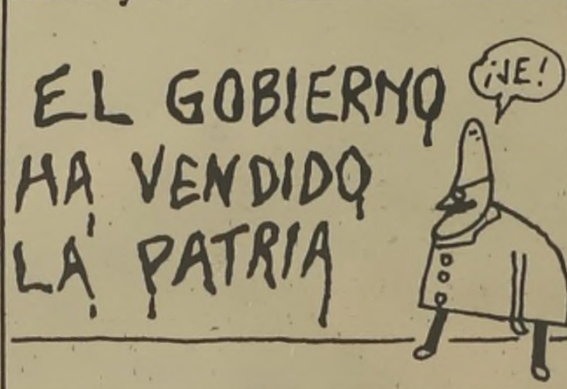 EL GOBIERNO
HA VENDIDO
LA PATRIA
¡JE!